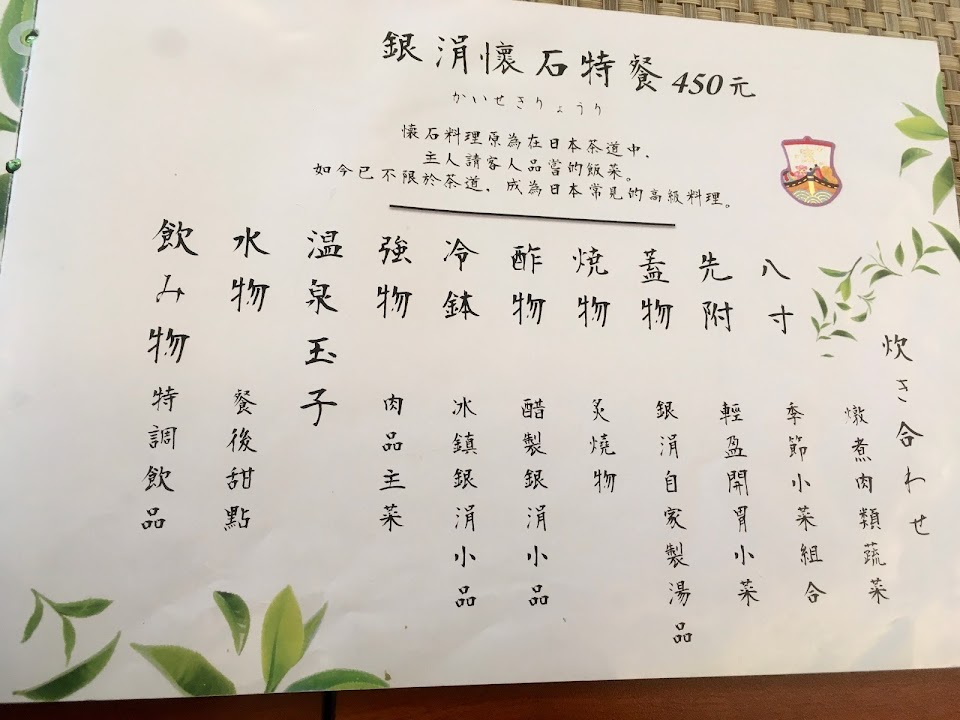 銀涓懷石特餐 450元
かいせきりょうり
懷石料理原為在日本茶道中,
主人請客人品嘗的飯菜。
如今已不限於茶道, 成為日本常見的高級料理。
炊き合わせ
燉煮肉類蔬菜
八寸
季節小菜組合
先附
輕盈開胃小菜
蓋物
銀涓自家製湯品
燒物
炙燒物
酢物
醋製銀涓小品
冷鉢
冰鎮銀涓小品
強物
肉品主菜
温泉玉子
水物
餐後甜點
飲み物
特調飲品